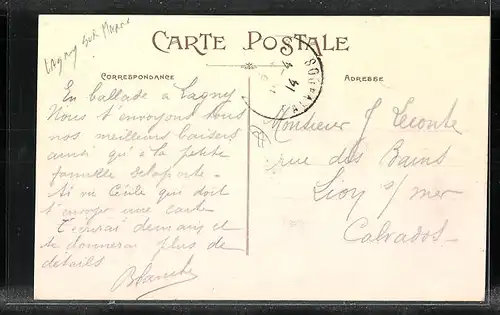 Lagny sur Marne
CARTE POSTALE
CORRESPONDANCE
ADRESSE
En ballade à Lagny
Nous t'envoyons tous
nos meilleurs baisers
ainsi qu'à la petite
famille Delaporte
Ai vu Cécile qui doit
t'envoyer une carte
T'écrirai demain et
te donnerai plus de
détails
Blanche
14
Monsieur J Leconte
rue des Bains
Lion s/ mer
Calvados